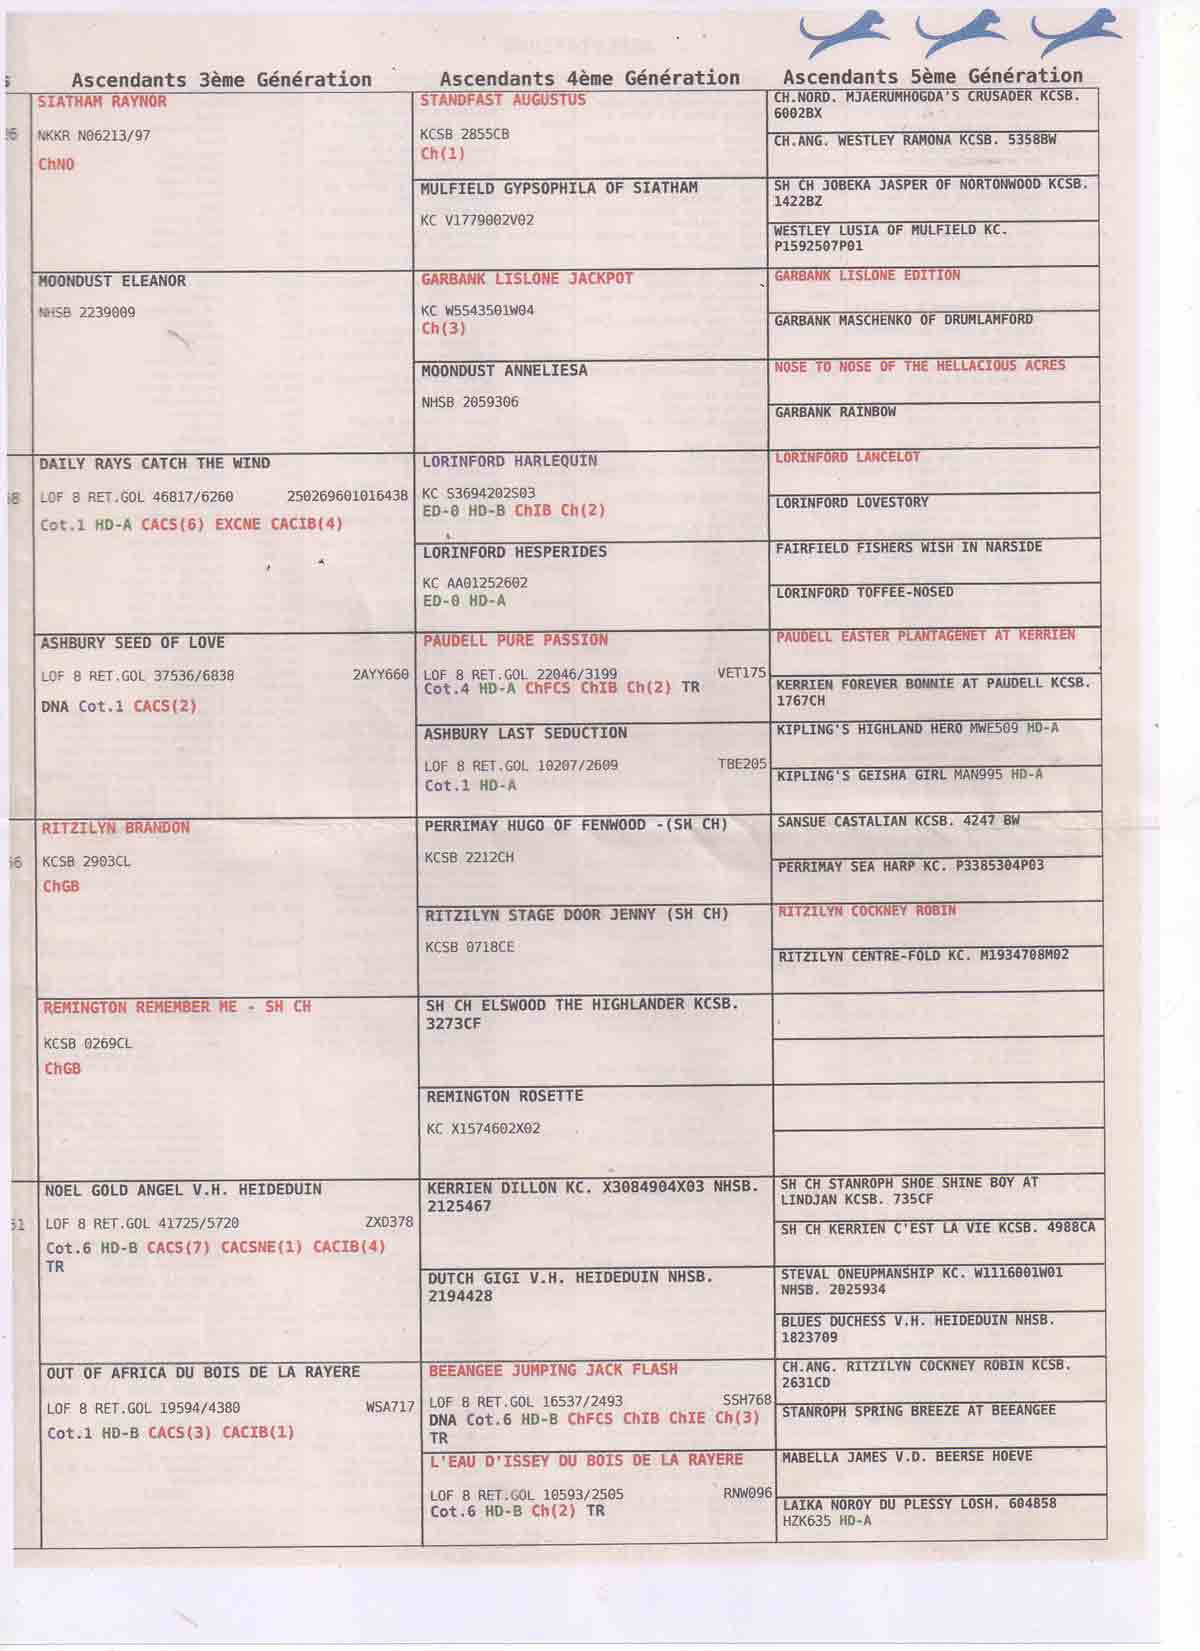 Ascendants 3ème Génération
Ascendants 4ème Génération
Ascendants 5ème Génération
SIATHAM RAYNOR
NKKR N06213/97
ChNO
MOONDUST ELEANOR
NHSB 2239009
DAILY RAYS CATCH THE WIND
LOF 8 RET.GOL 46817/6260 250269601016438
Cot.1 HD-A CACS(6) EXCNE CACIB(4)
ASHBURY SEED OF LOVE
LOF 8 RET.GOL 37536/6838 2AYY660
DNA Cot.1 CACS(2)
RITZILYN BRANDON
KCSB 2903CL
ChGB
REMINGTON REMEMBER ME - SH CH
KCSB 0269CL
ChGB
NOEL GOLD ANGEL V.H. HEIDEDUIN
LOF 8 RET.GOL 41725/5720 ZXD378
Cot.6 HD-B CACS(7) CACSNE(1) CACIB(4)
TR
OUT OF AFRICA DU BOIS DE LA RAYERE
LOF 8 RET.GOL 19594/4380 WSA717
Cot.1 HD-B CACS(3) CACIB(1)
STANDFAST AUGUSTUS
KCSB 2855CB
Ch(1)
MULFIELD GYPSOPHILA OF SIATHAM
KC V1779002V02
GARBANK LISLONE JACKPOT
KC W5543501W04
Ch(3)
MOONDUST ANNELIESA
NHSB 2059306
LORINFORD HARLEQUIN
KC S3694202S03
ED-0 HD-B ChIB Ch(2)
LORINFORD HESPERIDES
KC AA01252602
ED-0 HD-A
PAUDELL PURE PASSION
LOF 8 RET.GOL 22046/3199 VET175
Cot.4 HD-A ChFCS ChIB Ch(2) TR
ASHBURY LAST SEDUCTION
LOF 8 RET.GOL 10207/2609 TBE205
Cot.1 HD-A
PERRIMAY HUGO OF FENWOOD -(SH CH)
KCSB 2212CH
RITZILYN STAGE DOOR JENNY (SH CH)
KCSB 0718CE
SH CH ELSWOOD THE HIGHLANDER KCSB.
3273CF
REMINGTON ROSETTE
KC X1574602X02
KERRIEN DILLON KC. X3084904X03 NHSB.
2125467
DUTCH GIGI V.H. HEIDEDUIN NHSB.
2194428
BEEANGEE JUMPING JACK FLASH
LOF 8 RET.GOL 16537/2493 SSH768
DNA Cot.6 HD-B ChFCS ChIB ChIE Ch(3)
TR
L'EAU D'ISSEY DU BOIS DE LA RAYERE
LOF 8 RET.GOL 10593/2505 RNW096
Cot.6 HD-B Ch(2) TR
CH.NORD. MJAERUMHOGDA'S CRUSADER KCSB.
6002BX
CH.ANG. WESTLEY RAMONA KCSB. 5358BW
SH CH JOBEKA JASPER OF NORTONWOOD KCSB.
1422BZ
WESTLEY LUSIA OF MULFIELD KC.
P1592507P01
GARBANK LISLONE EDITION
GARBANK MASCHENKO OF DRUMLAMFORD
NOSE TO NOSE OF THE HELLACIOUS ACRES
GARBANK RAINBOW
LORINFORD LANCELOT
LORINFORD LOVESTORY
FAIRFIELD FISHERS WISH IN NARSIDE
LORINFORD TOFFEE-NOSED
PAUDELL EASTER PLANTAGENET AT KERRIEN
KERRIEN FOREVER BONNIE AT PAUDELL KCSB.
1767CH
KIPLING'S HIGHLAND HERO MWE509 HD-A
KIPLING'S GEISHA GIRL MAN995 HD-A
SANSUE CASTALIAN KCSB. 4247 BW
PERRIMAY SEA HARP KC. P3385304P03
RITZILYN COCKNEY ROBIN
RITZILYN CENTRE-FOLD KC. M1934708M02
SH CH STANROPH SHOE SHINE BOY AT
LINDJAN KCSB. 735CF
SH CH KERRIEN C'EST LA VIE KCSB. 4988CA
STEVAL ONEUPMANSHIP KC. W1116001W01
NHSB. 2025934
BLUES DUCHESS V.H. HEIDEDUIN NHSB.
1823709
CH.ANG. RITZILYN COCKNEY ROBIN KCSB.
2631CD
STANROPH SPRING BREEZE AT BEEANGEE
MABELLA JAMES V.D. BEERSE HOEVE
LAIKA NOROY DU PLESSY LOSH. 604858
HZK635 HD-A